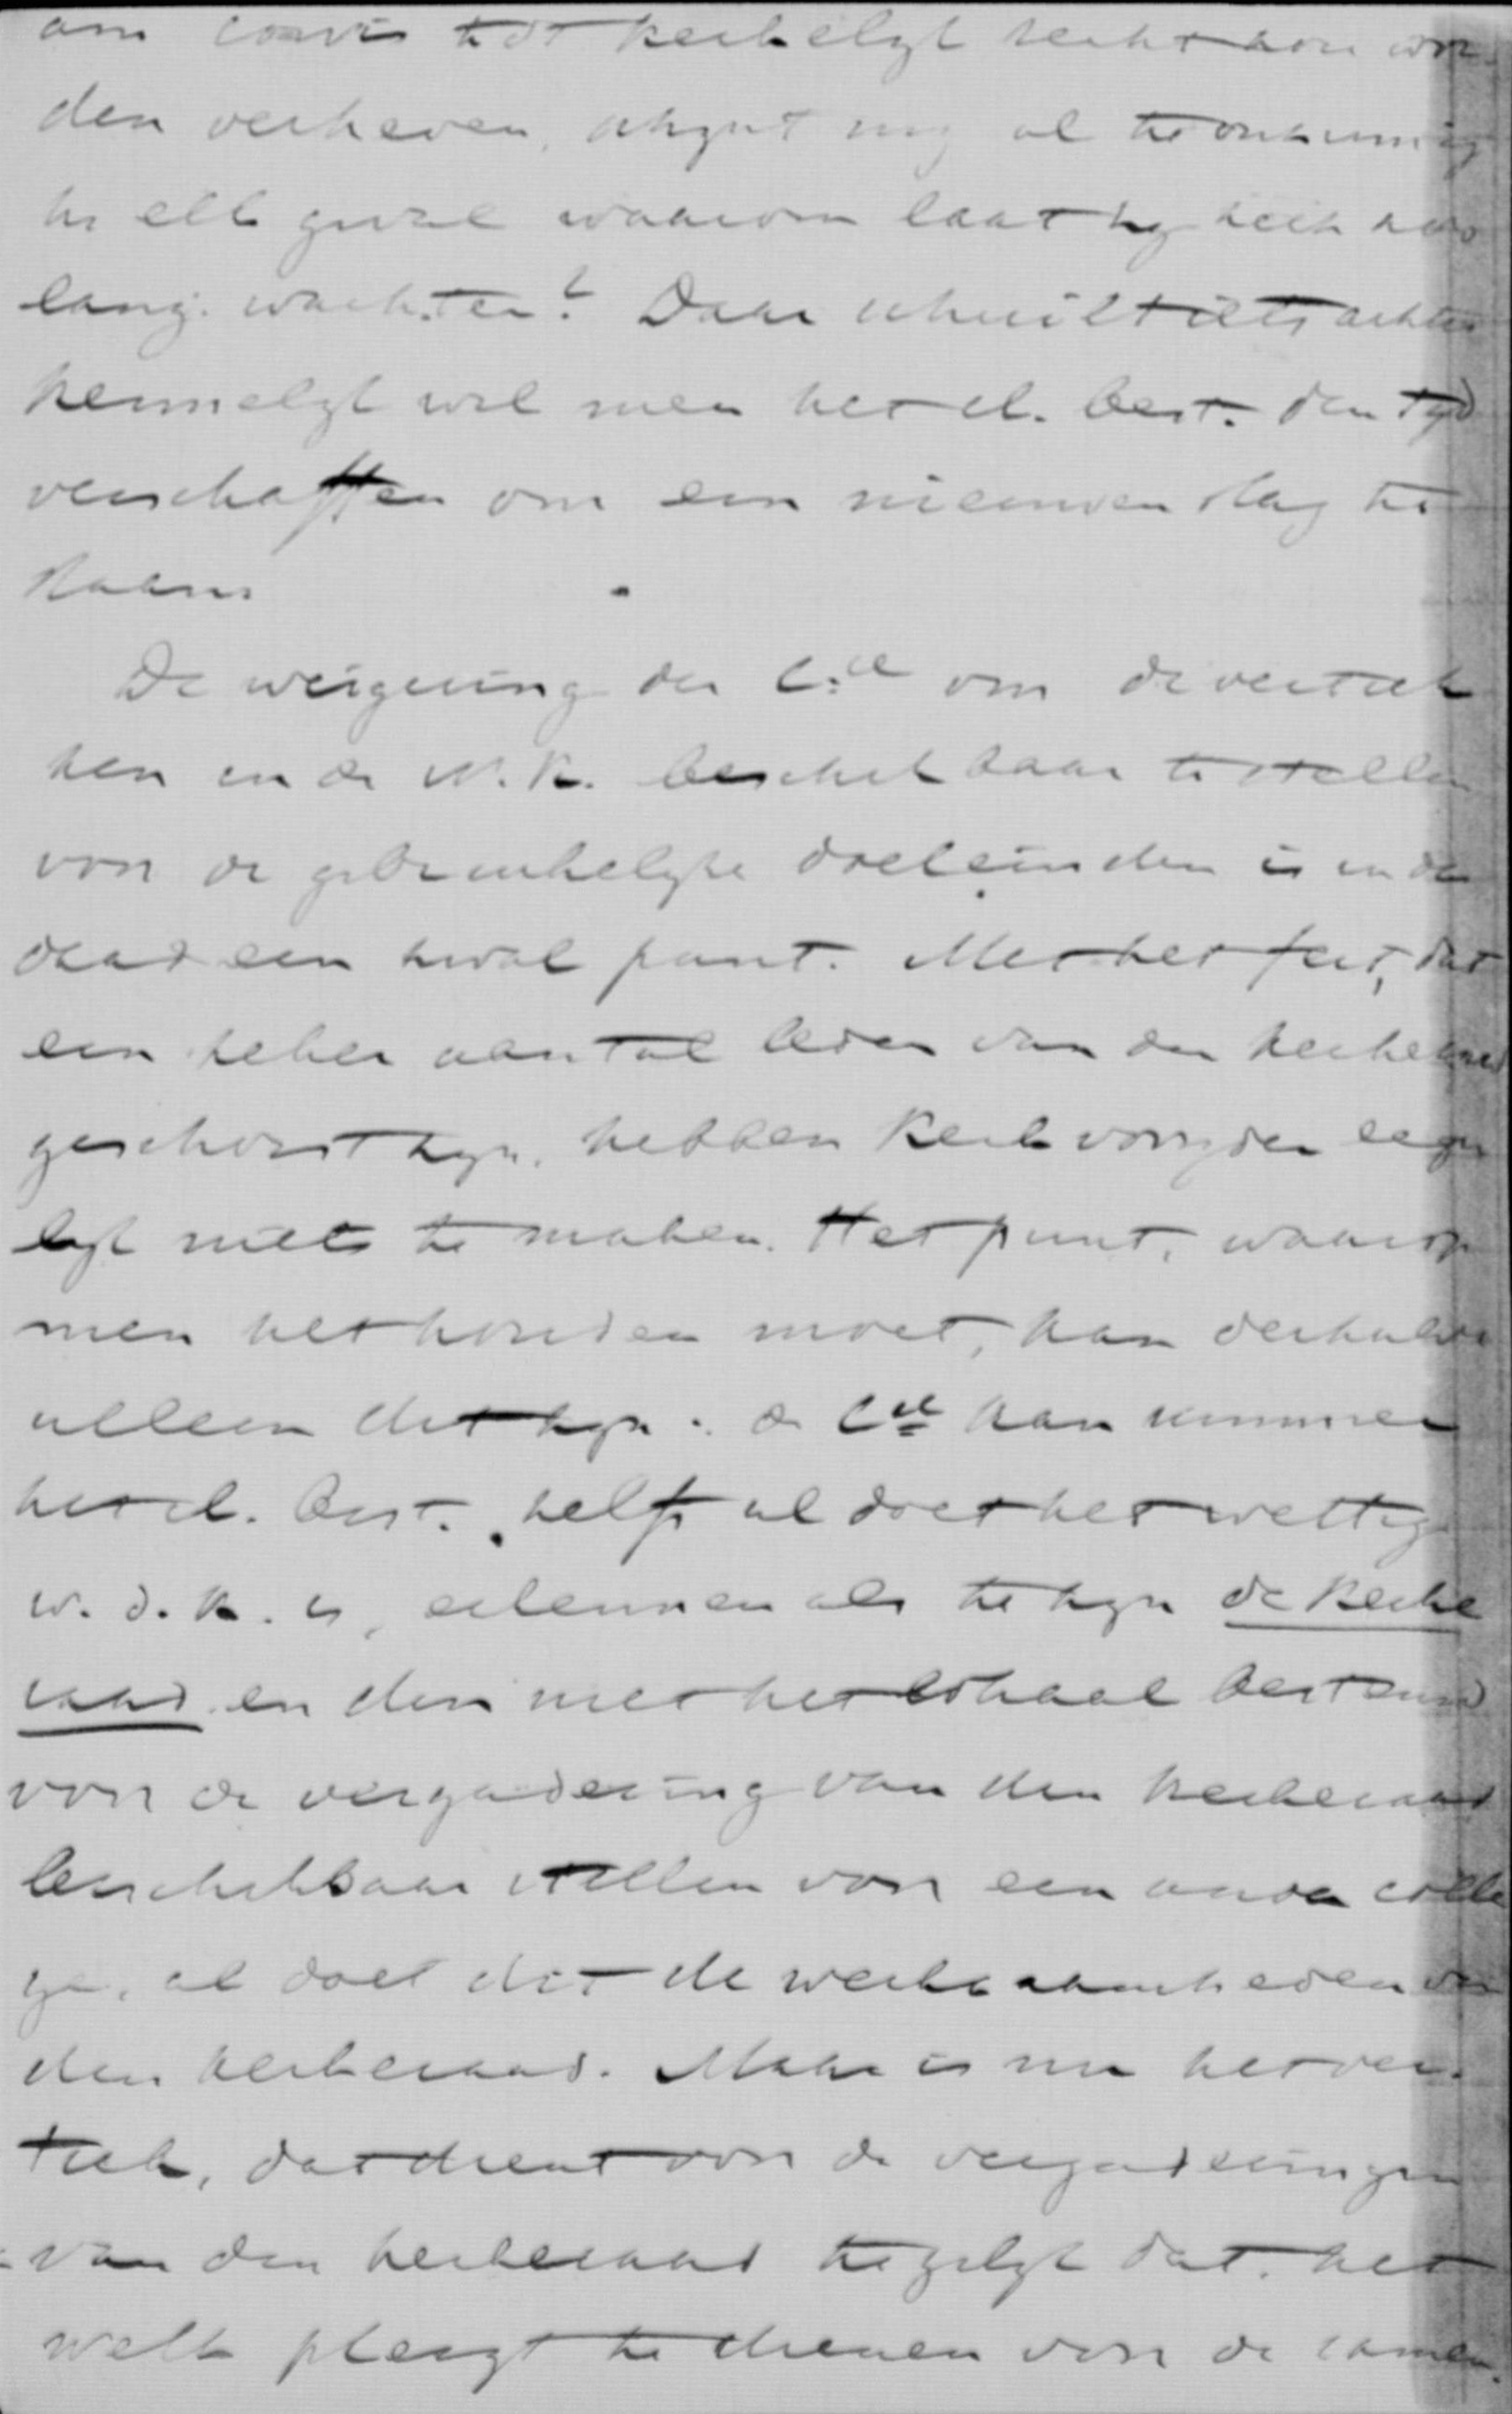 den verheven, schynt my al te onnoozel
In elk geval waarom laat hy zich zoo
lang wachten? Daar schuilt iets achter
kennelyk wil men het cl. best. den tyd
verschaffen om een nieuwen slag te
slaan.
De weigering der Cie om de vertrek
ken in de N.K. beschikbaar te stellen
voor de gebruikelyke doeleinden is in de
daad een zwak punt. Met het feit, dat
een zeker aantal leden van den kerkeraad
geschorst zyn, hebben Kerkvoogden eigen
lyk niets te maken. Het punt, waarop
men het houden moet, kan derhalve
alleen dit zyn: de Cie kan nimmer
het cl. best. zelfs al doet het wettig
w.d.k. is, erkennen als te zyn de kerke
raad en dus met het lokaal bestemd
voor de vergadering van den kerkeraad
beschikbaar stellen voor een ander colle
ge, al doet dit de werkzaamheden van
den kerkeraad. Maar is nu het ver-
trek, dat dient voor de vergaderingen
van den kerkeraad tegelyk dat, het
welk pleegt te dienen voor de samen-